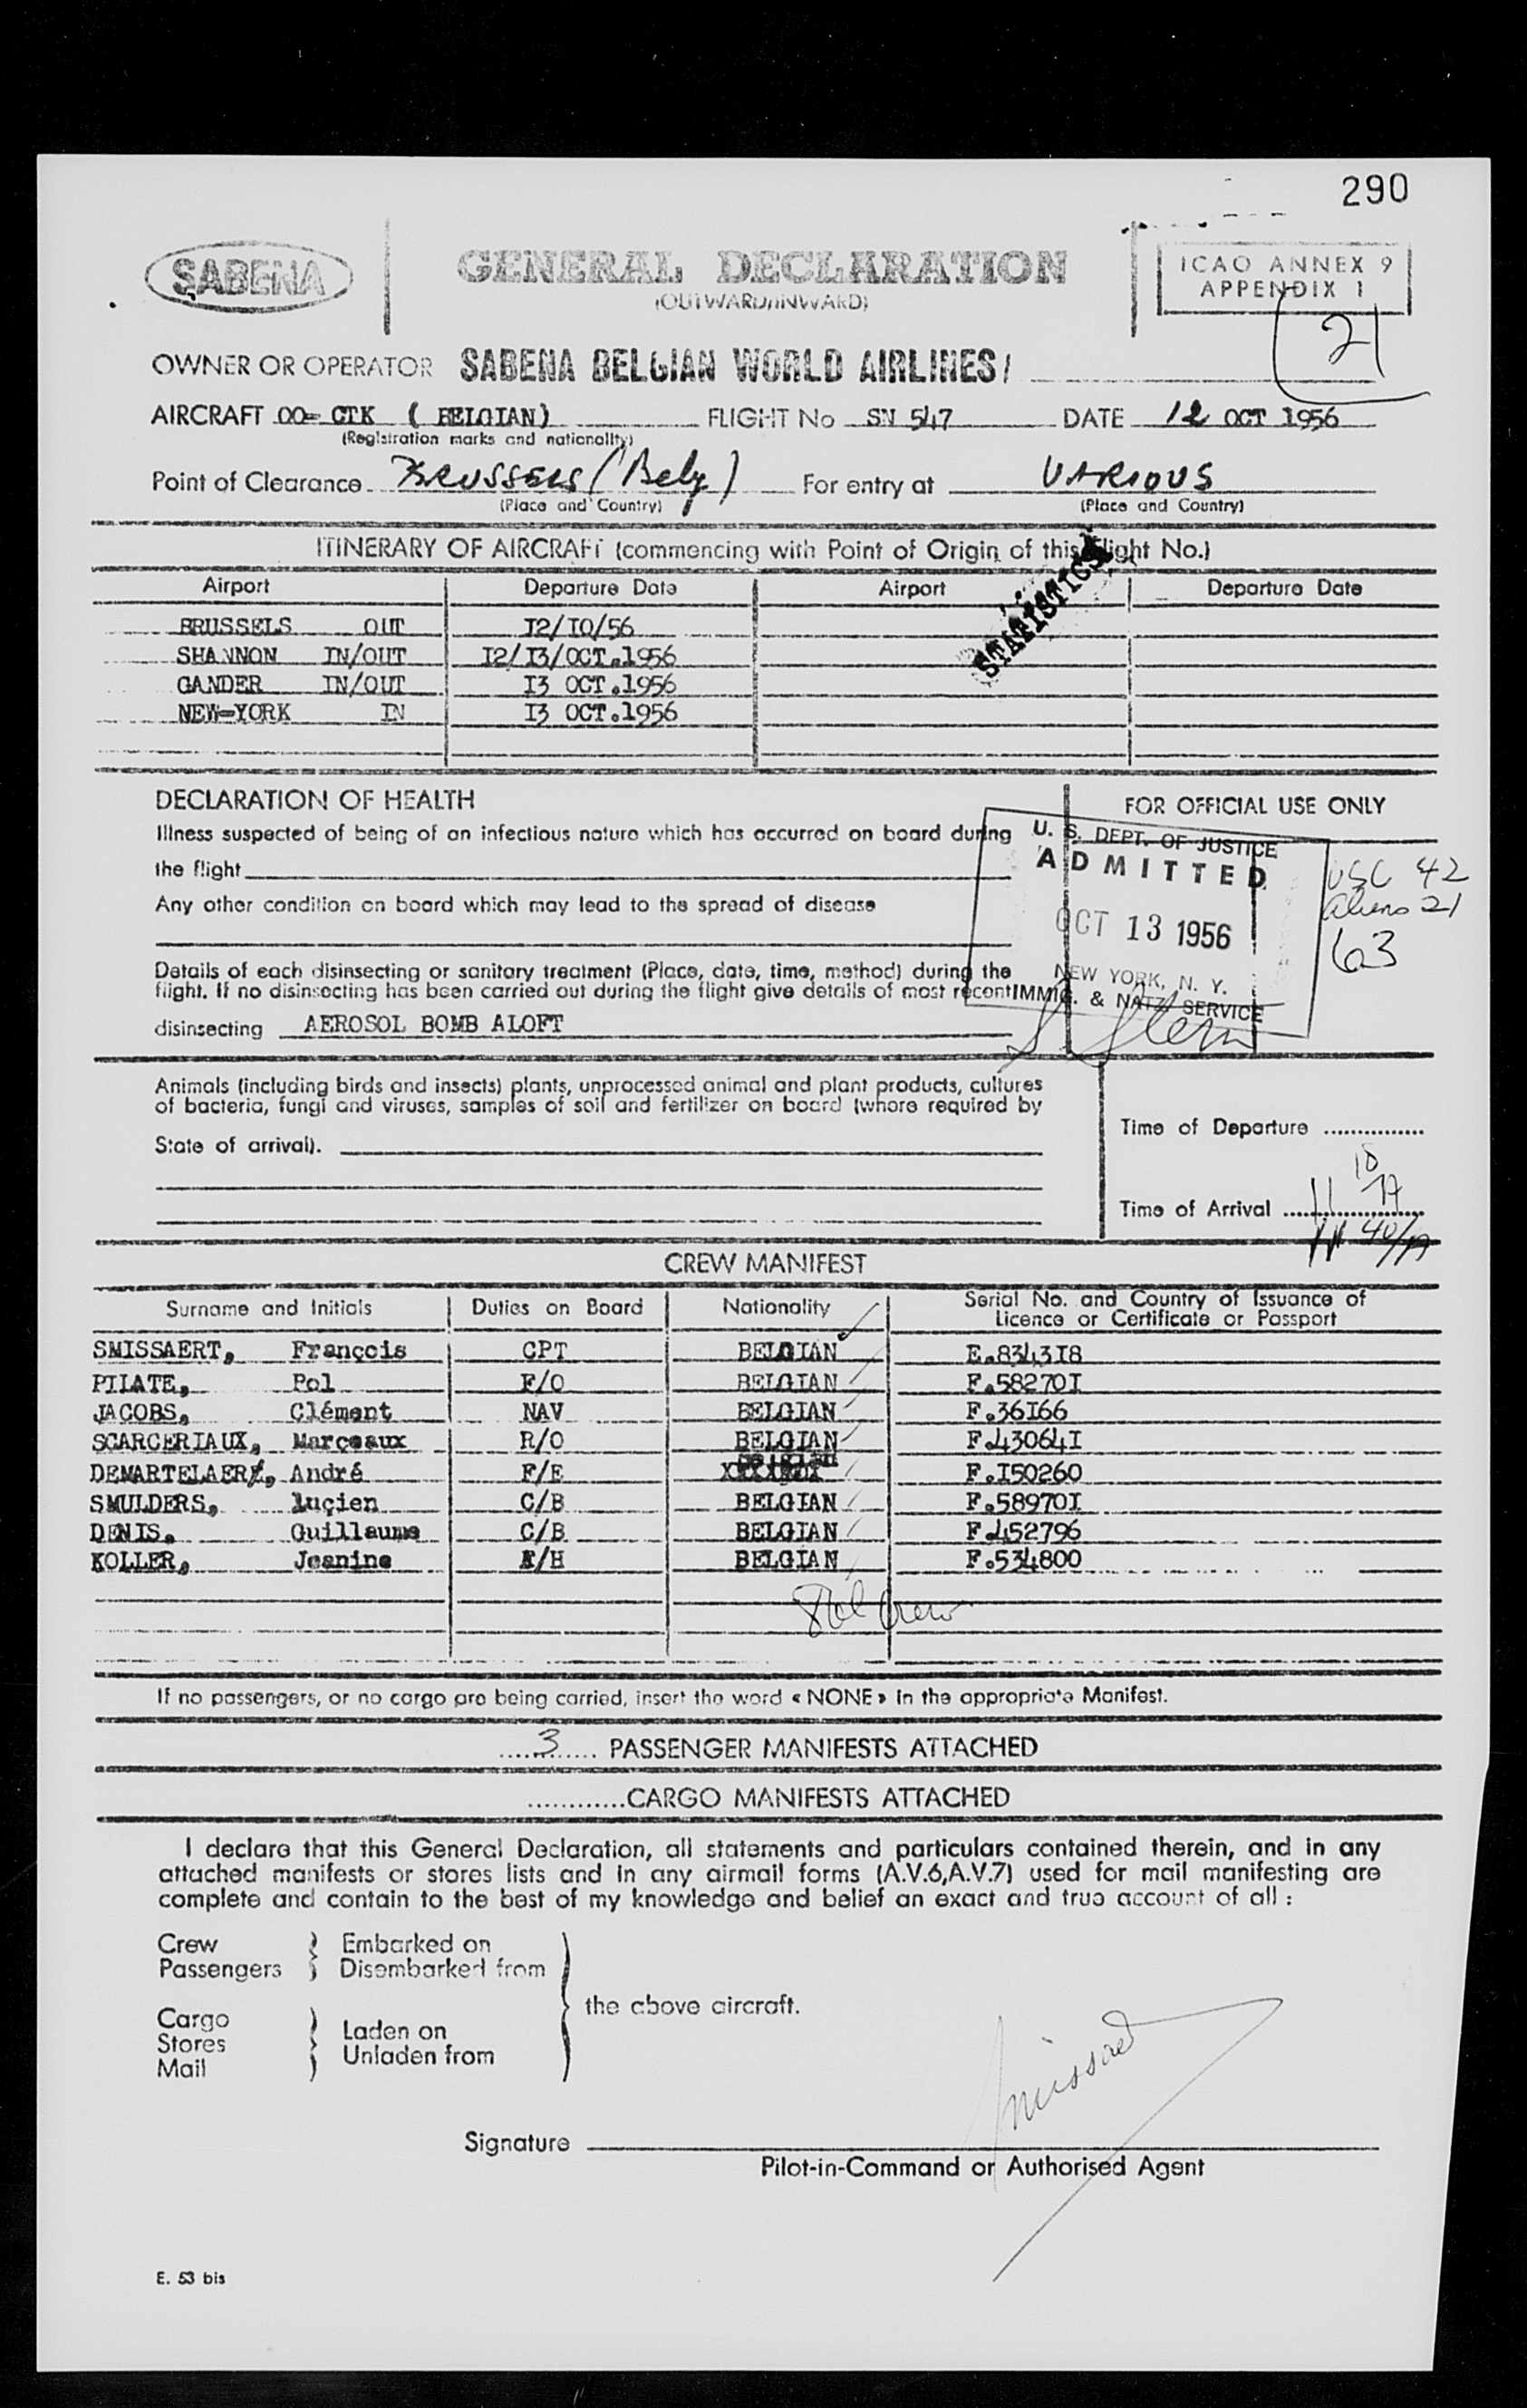 290
SABENA
GENERAL DECLARATION
(OUTWARD/INWARD)
ICAO ANNEX 9
APPENDIX 1
21
OWNER OR OPERATOR SABENA BELGIAN WORLD AIRLINES/
AIRCRAFT OO- CTK ( BELGIAN) FLIGHT No SN 547 DATE 12 OCT 1956
(Registration marks and nationality)
Point of Clearance BRUSSELS (Belg) For entry at VARIOUS
(Place and Country) (Place and Country)
ITINERARY OF AIRCRAFT (commencing with Point of Origin of this Flight No.)
STATISTICS
Airport Departure Date Airport Departure Date
BRUSSELS OUT I2/I0/56
SHANNON IN/OUT I2/I3/OCT.1956
GANDER IN/OUT I3 OCT.1956
NEW-YORK IN I3 OCT.1956
DECLARATION OF HEALTH
Illness suspected of being of an infectious nature which has occurred on board during
the flight
Any other condition on board which may lead to the spread of disease
Details of each disinsecting or sanitary treatment (Place, date, time, method) during the
flight. If no disinsecting has been carried out during the flight give details of most recent
disinsecting AEROSOL BOMB ALOFT
FOR OFFICIAL USE ONLY
U. S. DEPT. OF JUSTICE
ADMITTED
OCT 13 1956
NEW YORK, N. Y.
IMMIG. & NATZ. SERVICE
S. Stern
USC 42
aliens 21
63
Animals (including birds and insects) plants, unprocessed animal and plant products, cultures
of bacteria, fungi and viruses, samples of soil and fertilizer on board (where required by
State of arrival).
Time of Departure ...............
Time of Arrival
11 40/A
CREW MANIFEST
Surname and Initials Duties on Board Nationality Serial No. and Country of Issuance of
Licence or Certificate or Passport
SMISSAERT, François CPT BELGIAN E.8343I8
PILATE, Pol F/O BELGIAN F.58270I
JACOBS, Clément NAV BELGIAN F.36I66
SCARCERIAUX, Marceaux R/O BELGIAN F.43064I
DEMARTELAERE, André F/E Belgian F.I50260
SMULDERS, Lucien C/B BELGIAN F.58970I
DENIS, Guillaume C/B BELGIAN F.452796
KOLLER, Jeanine A/H BELGIAN F.534800
Crew
If no passengers, or no cargo are being carried, insert the word « NONE » in the appropriate Manifest.
.....3...... PASSENGER MANIFESTS ATTACHED
............CARGO MANIFESTS ATTACHED
I declare that this General Declaration, all statements and particulars contained therein, and in any
attached manifests or stores lists and in any airmail forms (A.V.6,A.V.7) used for mail manifesting are
complete and contain to the best of my knowledge and belief an exact and true account of all :
Crew } Embarked on
Passengers } Disembarked from
the above aircraft.
Cargo
Stores } Laden on
Mail } Unladen from
Smissaert
Signature
Pilot-in-Command or Authorised Agent
E. 53 bis